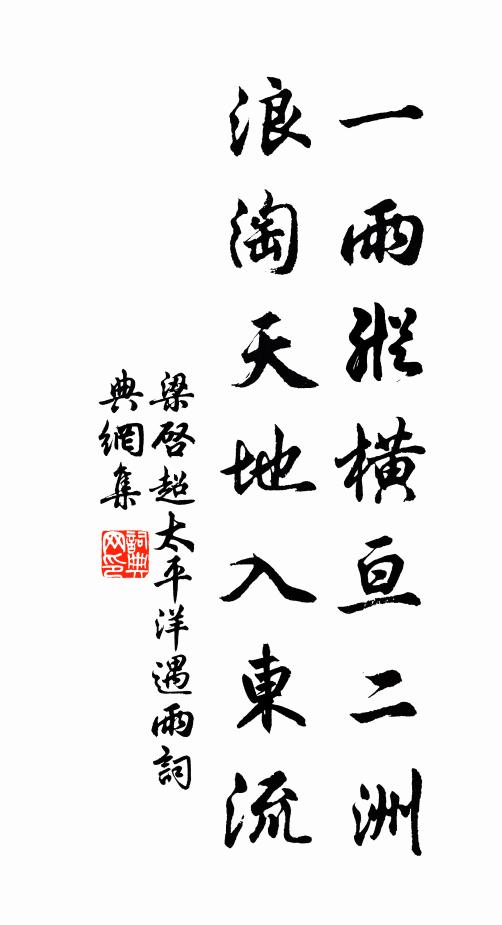 一雨縱橫亘二洲
浪淘天地入東流
梁啓超太平洋遇雨詞
典網集
詞典
网印